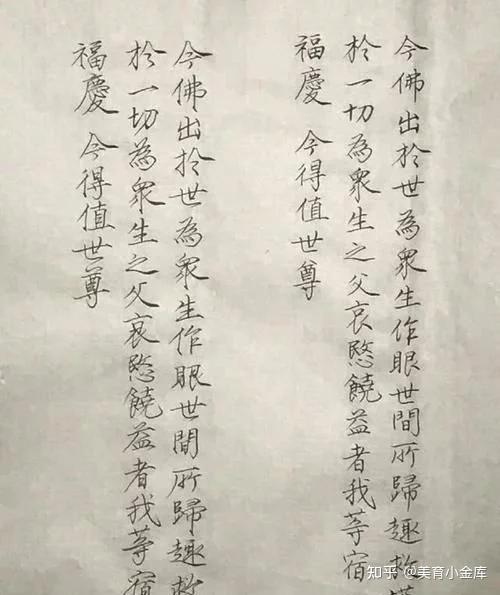 今佛出於世為衆生作眼世間所歸趣
於一切為衆生之父哀愍饒益者我等宿
福慶 今得值世尊
今佛出於世為衆生作眼世間所歸趣
於一切為衆生之父哀愍饒益者我等宿
福慶 今得值世尊
知乎 @美育小金库